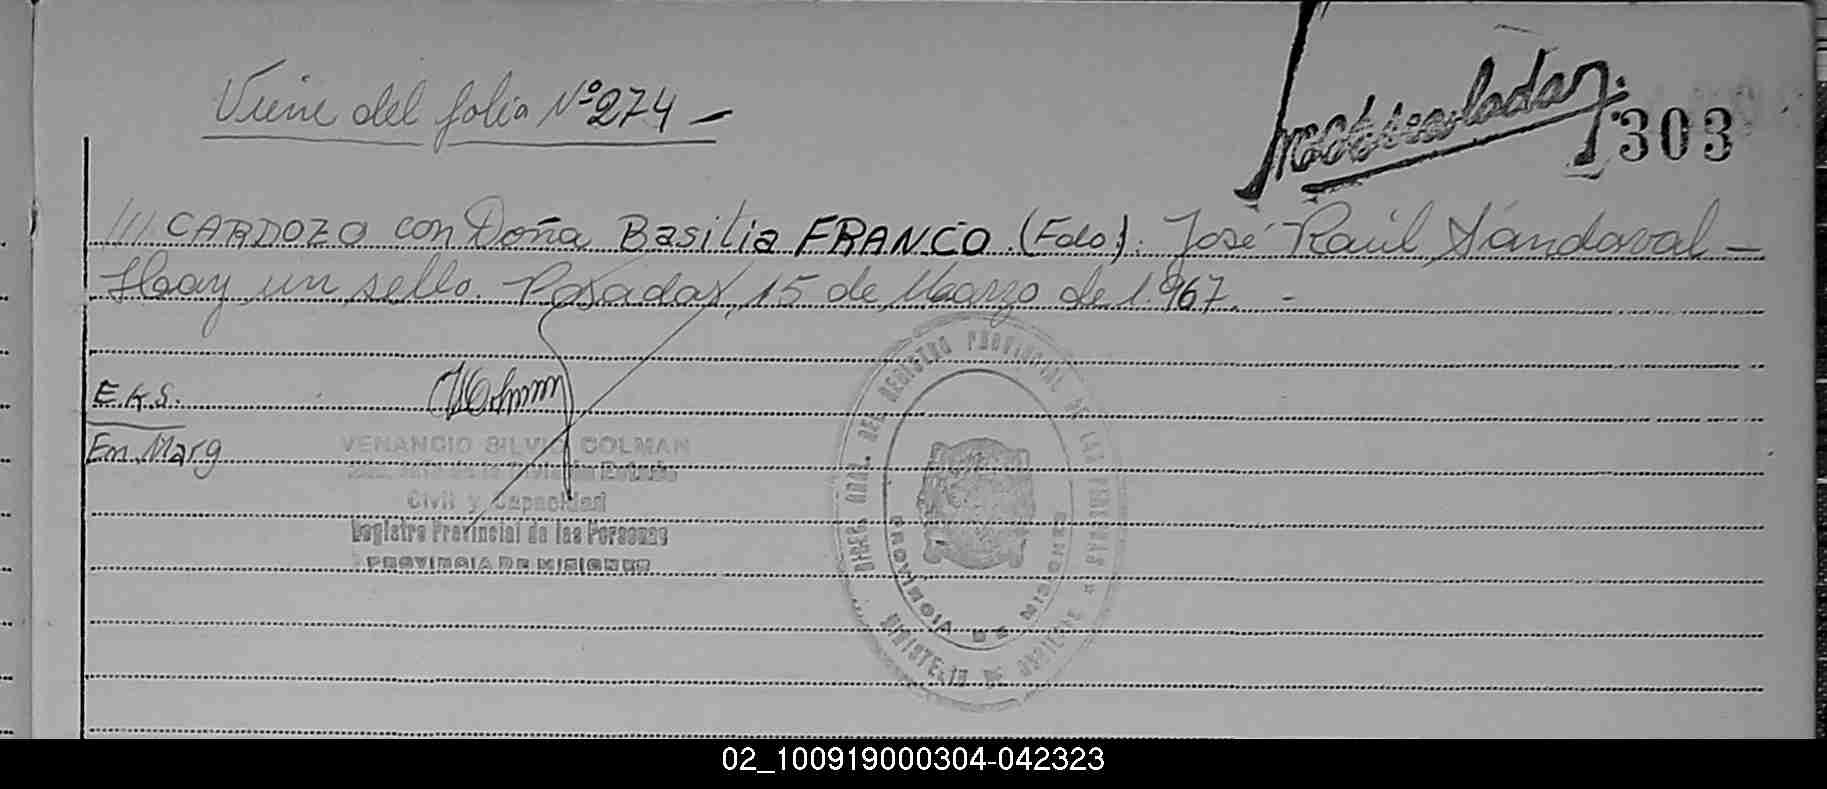 Viene del folio Nº 274 -
303
/// CARDOZO con Doña Basilia FRANCO. (Fdo). José Raúl Sandoval -
Hay un sello. Posadas, 15 de Marzo de 1.967. -
E.K.S.
Em. Marg
VENANCIO SILVIO COLMAN
Civil y Capacidad
Registro Provincial de las Personas
PROVINCIA DE MISIONES
DIREC. GRAL. DEL REGISTRO PROVINCIAL DE LAS PERSONAS
PROVINCIA DE MISIONES
02_100919000304-042323